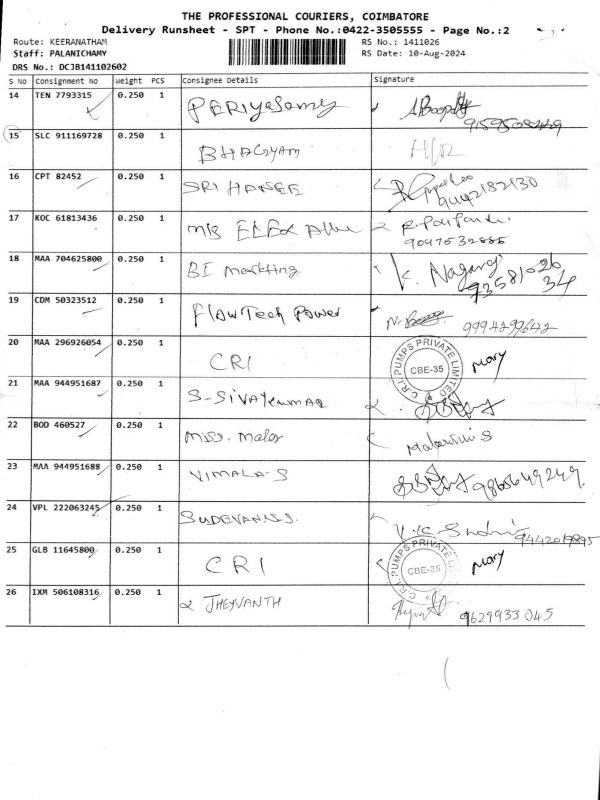 THE PROFESSIONAL COURIERS, COIMBATORE
Delivery Runsheet - SPT - Phone No.:0422-3505555 - Page No.:2
Route: KEERANATHAM RS No.: 1411026
Staff: PALANICHAMY RS Date: 10-Aug-2024
DRS No.: DCJB141102602
S No Consignment No Weight PCS Consignee Details Signature
14 TEN 7793315 0.250 1 PERIyasamy
15 SLC 911169728 0.250 1 BHAGYAM
16 CPT 82452 0.250 1 SRI HANEE 9442182130
17 KOC 61813436 0.250 1 M/s
18 MAA 704625800 0.250 1 BE markting K. Nagaraj
19 CDM 50323512 0.250 1 FlowTech Power 9994299642
20 MAA 296926054 0.250 1 CRI C.R.I. PUMPS PRIVATE LIMITED CBE-35 Mary
21 MAA 944951687 0.250 1 S-SIVAKUMAR
22 BOD 460527 0.250 1 Miss. Malar
23 MAA 944951688 0.250 1 VIMALA-S 9865649249
24 VPL 222063245 0.250 1 SUDEVAN.S.S. 9442019895
25 GLB 11645800 0.250 1 CRI C.R.I. PUMPS PRIVATE CBE-35 Mary
26 IXM 506108316 0.250 1 JHEYVANTH 9629933045